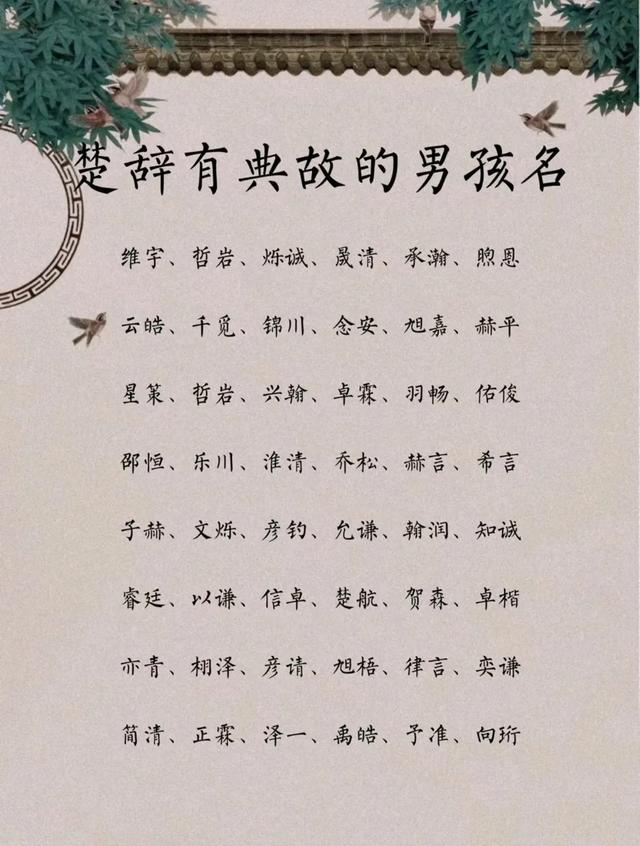 楚辞有典故的男孩名
维宇、哲岩、烁诚、晟清、承瀚、煦恩
云皓、千觅、锦川、念安、旭嘉、赫平
星策、哲岩、兴翰、卓霖、羽畅、佑俊
邵恒、乐川、淮清、乔松、赫言、希言
子赫、文烁、彦钧、允谦、翰润、知诚
睿廷、以谦、信卓、楚航、贺森、卓楷
亦青、栩泽、彦请、旭梧、律言、奕谦
简清、正霖、泽一、禹皓、予准、向珩